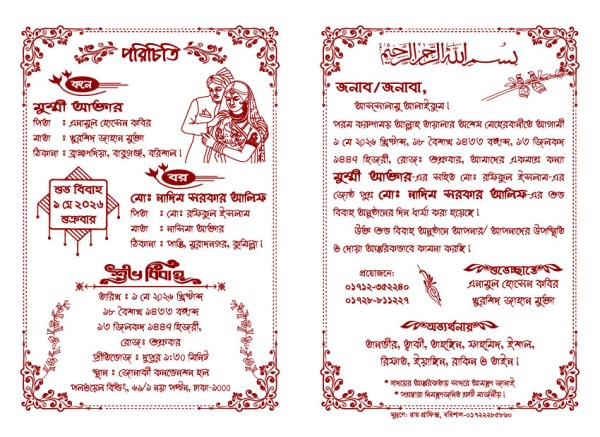 পরিচিতি
কনে
মুম্মী আক্তার
পিতা : এনামুল হোসেন কবির
মাতা : খুরশিদ জাহান মুক্তা
ঠিকানা : ব্রাহ্মণদিয়া, বাবুগঞ্জ, বরিশাল।
শুভ বিবাহ
৯ মে ২০২৬
শুক্রবার
বর
মোঃ নাদিম সরকার আলিফ
পিতা : মোঃ রফিকুল ইসলাম
মাতা : নাসিমা আক্তার
ঠিকানা : পান্তি, মুরাদনগর, কুমিল্লা।
শুভ বিবাহ
তারিখ : ৯ মে ২০২৬ খ্রিস্টাব্দ
১৮ বৈশাখ ১৪৩৩ বঙ্গাব্দ
১৩ জিলকদ ১৪৪৭ হিজরী,
রোজঃ শুক্রবার
প্রীতিভোজ : দুপুর ১:৩০ মিনিট
স্থান : জোনাকী কনভেনশন হল
পলওয়েল বিল্ডিং, ৬৯/১ নয়া পল্টন, ঢাকা-১০০০
بسم الله الرحمن الرحيم
জনাব/জনাবা,
আসসালামু আলাইকুম।
পরম করুণাময় আল্লাহ তায়ালার অশেষ মেহেরবানীতে আগামী
৯ মে ২০২৬ খ্রিস্টাব্দ, ১৮ বৈশাখ ১৪৩৩ বঙ্গাব্দ, ১৩ জিলকদ
১৪৪৭ হিজরী, রোজঃ শুক্রবার, আমাদের একমাত্র কন্যা
মুম্মী আক্তার-এর সহিত মোঃ রফিকুল ইসলাম-এর
জ্যেষ্ঠ পুত্র মোঃ নাদিম সরকার আলিফ-এর শুভ
বিবাহ অনুষ্ঠানের দিন ধার্য্য করা হয়েছে।
উক্ত শুভ বিবাহ অনুষ্ঠানে আপনার/ আপনাদের উপস্থিতি
ও দোয়া আন্তরিকভাবে কামনা করছি।
প্রয়োজনে:
০১৭১২-৩৫২২৪০
০১৭২৮-৮১১২২৭
শুভেচ্ছান্তে
এনামুল হোসেন কবির
খুরশিদ জাহান মুক্তা
অভ্যর্থনায়
তানভীর, ত্বাকী, তাহছিন, ফাহমিদ, ইশাল,
রিফাত, ইয়াছিন, রাকিন ও তাইন।
* মাধ্যমের আন্তরিকতায় সাদরে আমন্ত্রণ জানাই
* পত্রদ্বারা নিমন্ত্রণজনিত ত্রুটি মার্জনীয়।
মুদ্রণে: রায় গ্রাফিক্স, বরিশাল-০১৭২২২৮৫৮৬০